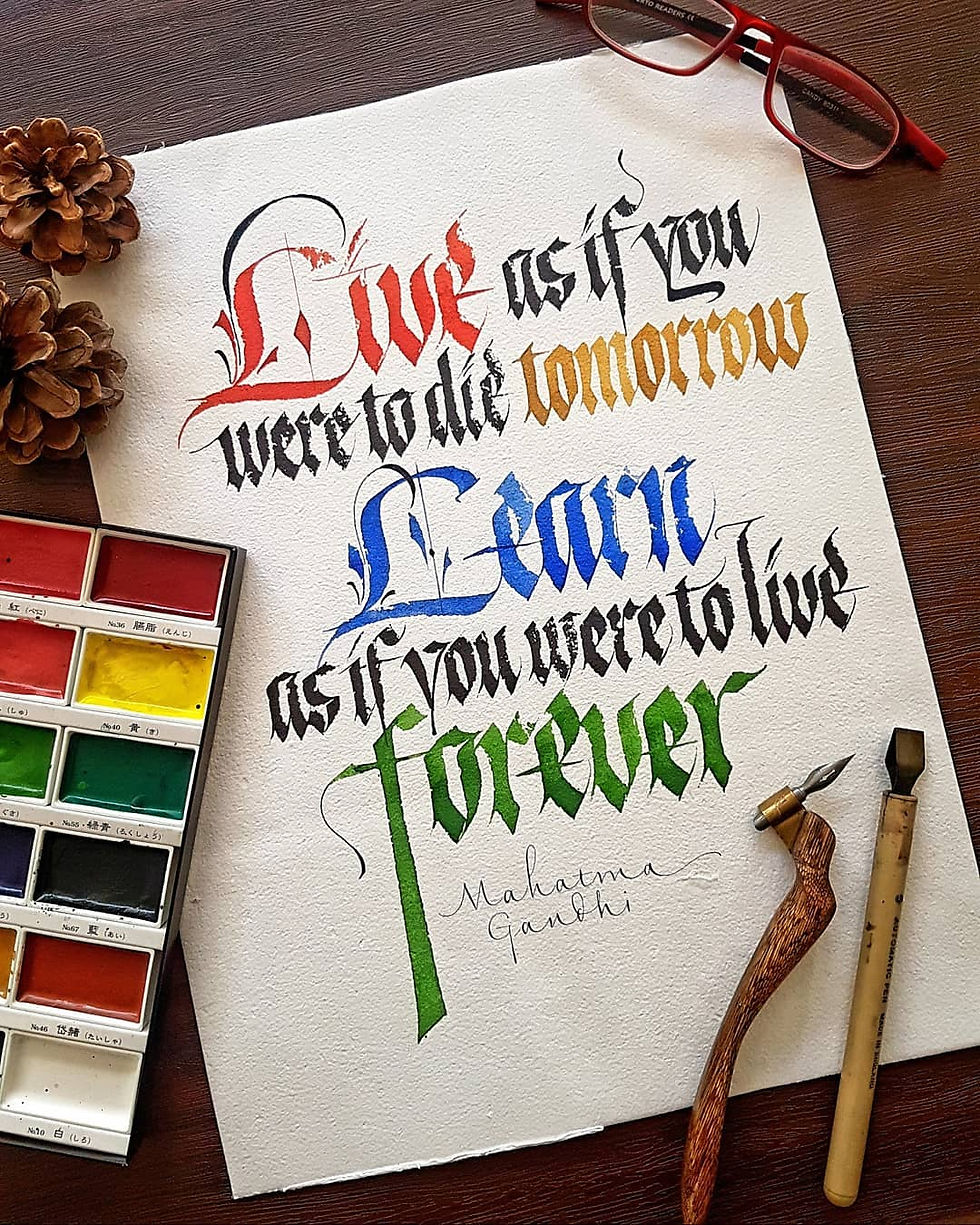 Live as if you
were to die tomorrow
Learn
as if you were to live
forever
Mahatma
Gandhi
READERS CE
CANDY
紅 (べに)
№36 臙脂 (えんじ)
№40 黄 (き)
№55 緑青 (ろくしょう)
№67 藍 (あい)
№46 岱赭 (たいしゃ)
№10 白 (しろ)
AUTOMATIC PEN MADE IN ENGLAND